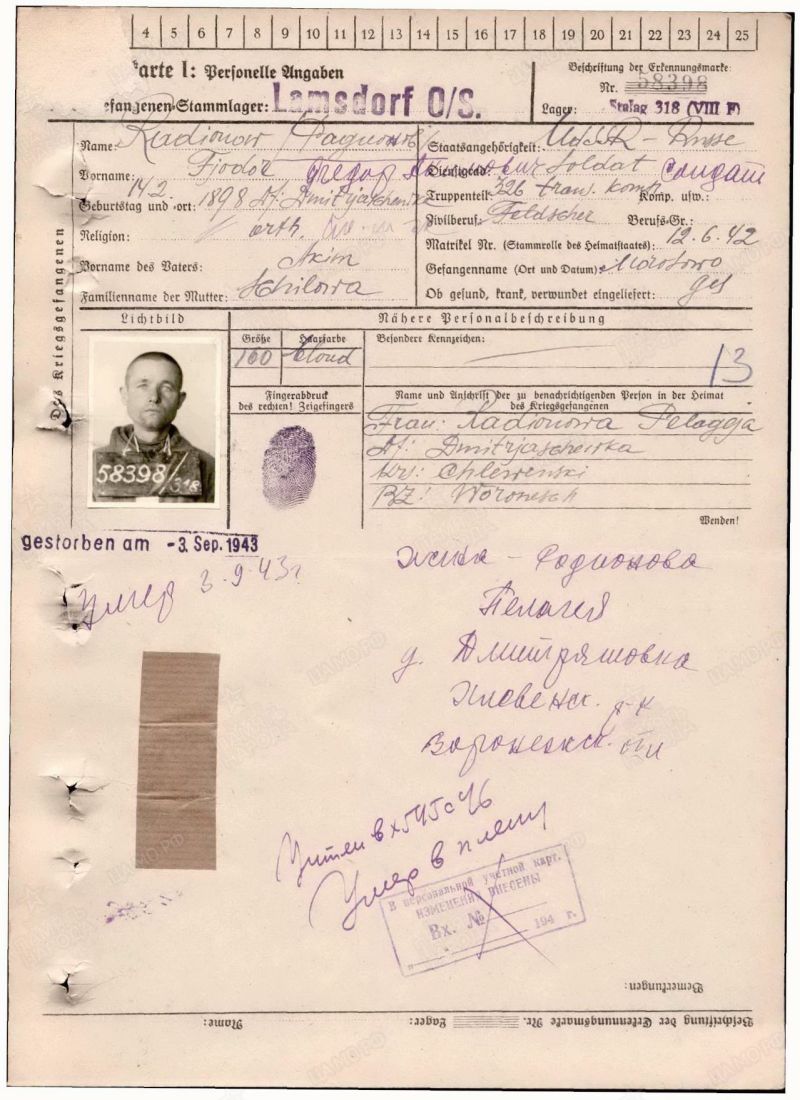 4 5 6 7 8 9 10 11 12 13 14 15 16 17 18 19 20 21 22 23 24 25
arte I: Personelle Angaben
efangenen-Stammlager: Lamsdorf O/S.
Beschriftung der Erkennungsmarke:
Nr. 58398
Lager: Stalag 318 (VIII F)
Des Kriegsgefangenen
Name: Radionow
Vorname: Fjodor
Geburtstag und -ort: 14.2. 1898 Df: Dmitrjaschewka
Religion: orth.
Vorname des Vaters: Akim
Familienname der Mutter: Schilowa
Staatsangehörigkeit: UdSSR - Russe
Dienstgrad: Soldat солдат
Truppenteil: 326 tran. komp. Komp. usw.:
Zivilberuf: Feldscher Berufs-Gr.:
Matrikel Nr. (Stammrolle des Heimatstaates): 12.6.42
Gefangenname (Ort und Datum):
Ob gesund, krank, verwundet eingeliefert: ges
Lichtbild
58398/318
Nähere Personalbeschreibung
Größe Haarfarbe Besondere Kennzeichen:
160 blond
13
Fingerabdruck
des rechten! Zeigefingers
Name und Anschrift der zu benachrichtigenden Person in der Heimat
des Kriegsgefangenen
Frau: Radionowa Pelageja
Df: Dmitrjaschewka
Kr: Chlewenski
BZ: Woronesch
Wenden!
gestorben am -3. Sep. 1943
Умер 3.9.43г
жена - Родионова
Пелагея
д. Дмитряшовка
Хлевенск. р-н
Воронежск. обл
Учтен в
Умер в плену
В персональной учетной карт.
ИЗМЕНЕНИЯ ВНЕСЕНЫ
Вх. №
194 г.
Bemerkungen:
Beschriftung der Erkennungsmarke Nr. Lager:
Name: